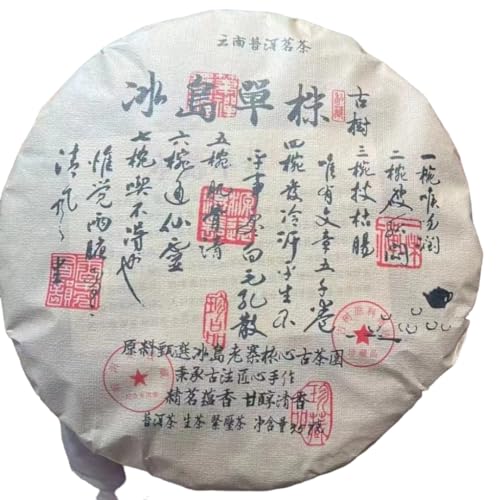 云南普洱茗茶
冰島單株
古树
一碗喉吻润
二碗破孤闷
三碗搜枯肠
唯有文章五千卷
四碗发冷汗平生不
平事尽向毛孔散
五碗肌骨清
六碗通仙灵
七碗喫不得也
惟觉两腋
清风
原料甄选冰岛老寨核心古茶园
秉承古法匠心手作
精茗蕴香 甘醇清香
普洱茶 生茶 紧压茶 净含量357克
珍藏